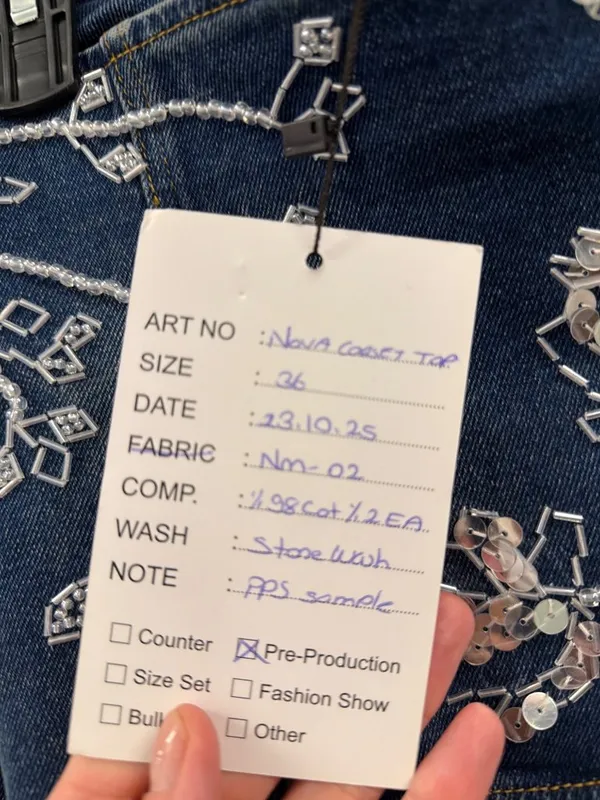 ART NO : NOVA CORSET TOP
SIZE : 36
DATE : 23.10.25
FABRIC : Nm-02
COMP. : %98 Cot %2 EA.
WASH : Stone Wash
NOTE : PPS sample
Counter Pre-Production
Size Set Fashion Show
Bulk Other